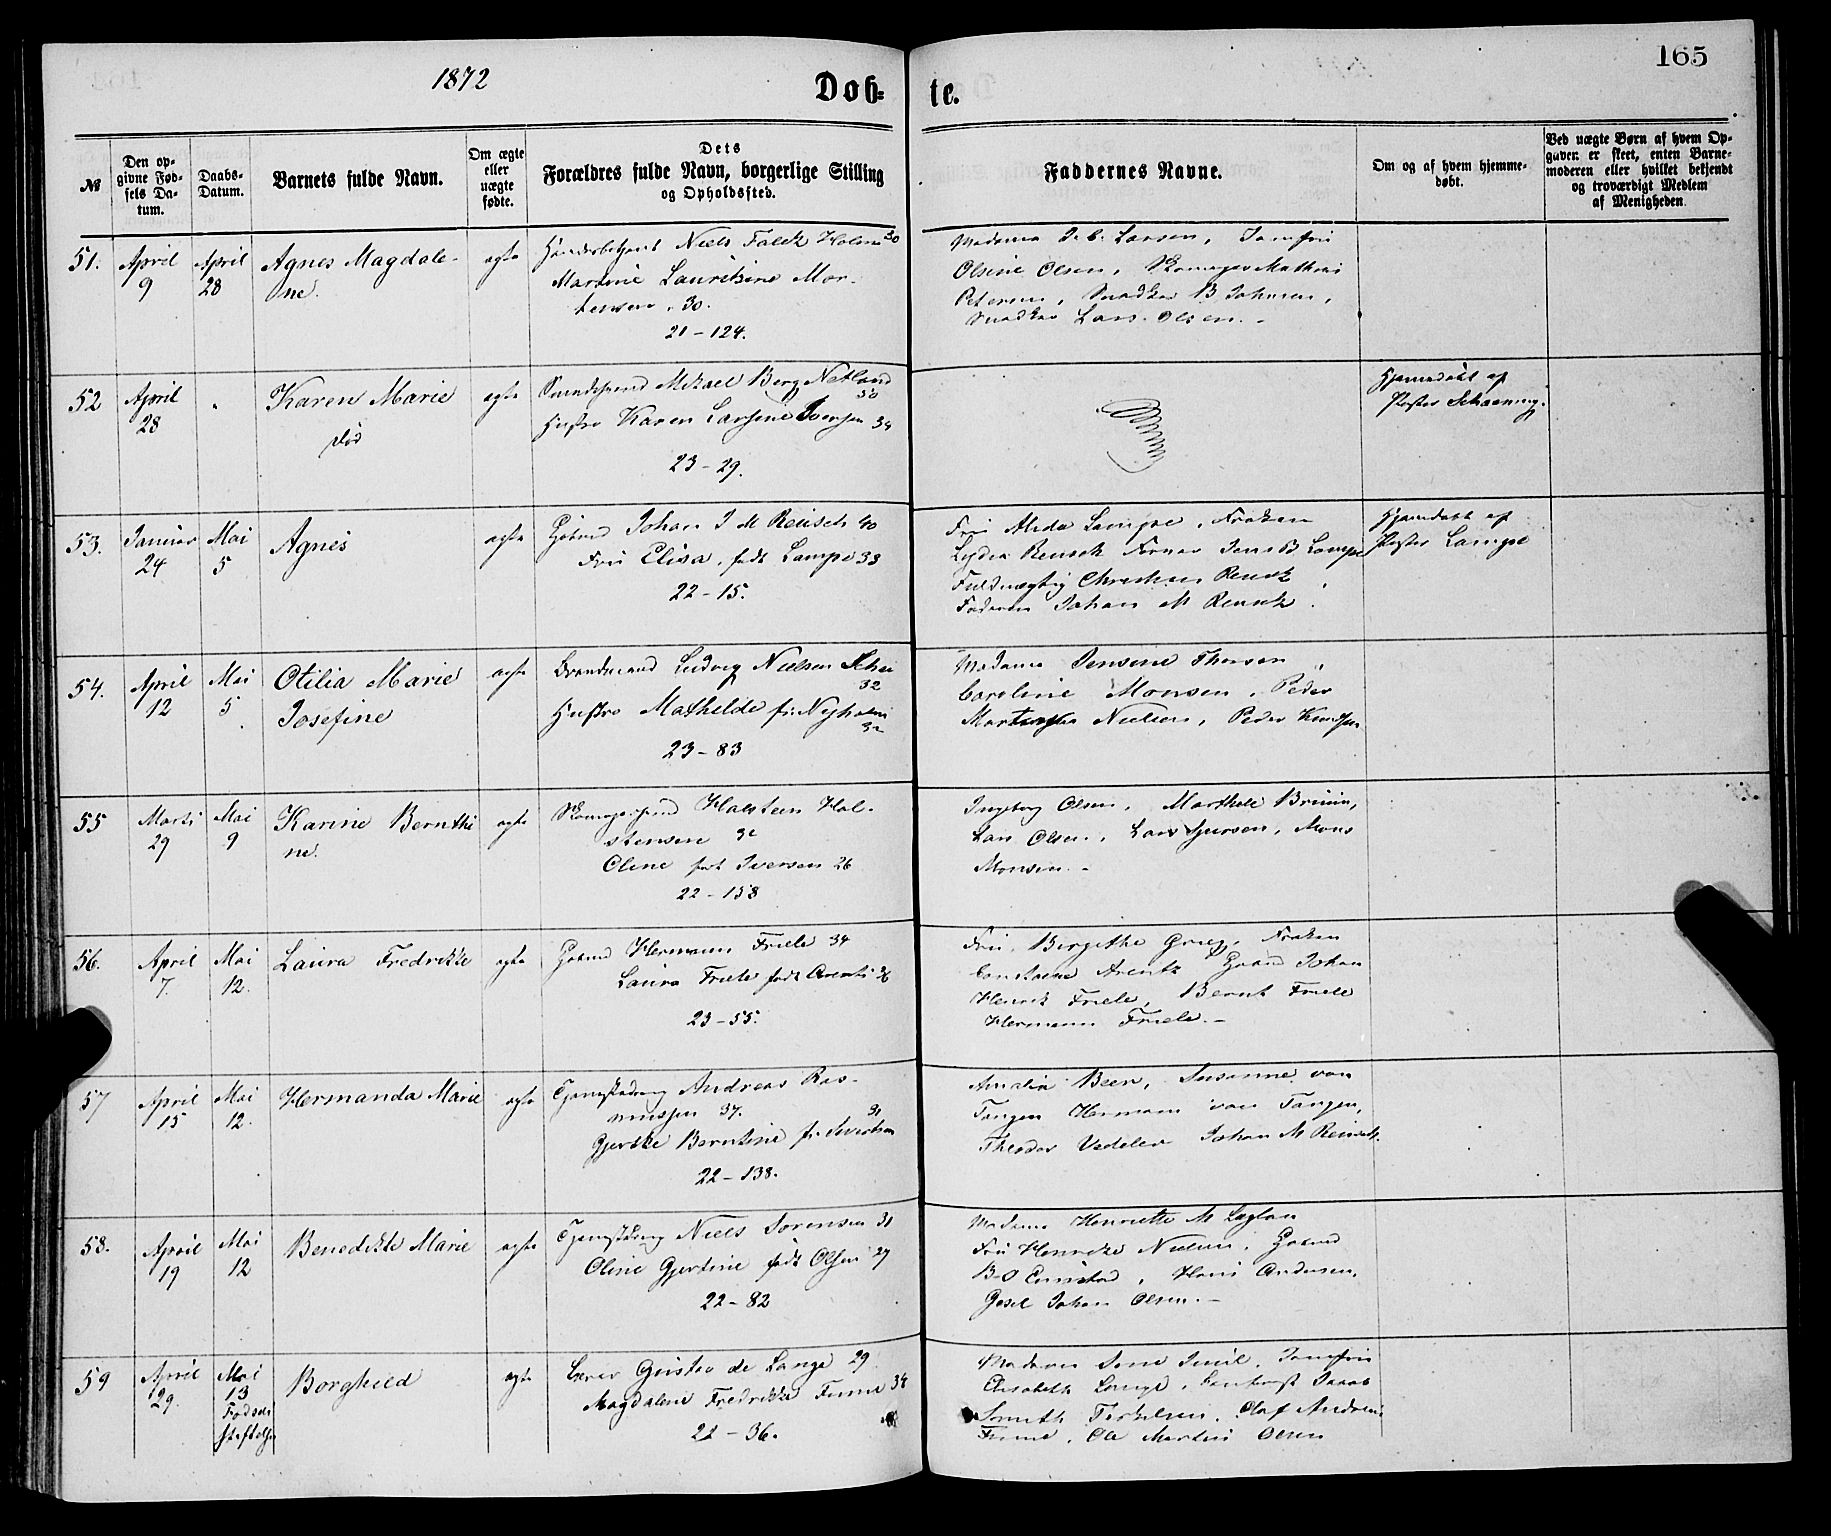 165
1872
Døb-
te.
№
Den op-
givne Fød-
sels Da-
tum.
Daabs-
Datum.
Barnets fulde Navn.
Om ægte
eller
uægte
fødte.
Dets
Forældres fulde Navn, borgerlige Stilling
og Opholdssted.
Faddernes Navne.
Om og af hvem hjemme-
døbt.
Ved uægte Børn af hvem Op-
gaven er skeet, enten Barne-
moderen eller hvilket bekjendt
og troværdigt Medlem
af Menigheden.
51.
April
9
April
28
Agnes Magdale-
ne.
ægte
Niels Falck Holm 30
Martine Lauritsine Mor-
tensen. 30.
21-124.
Madame Larsen, Jomfru
Olsine Olsen, Skomager Mathias
Petersen, Snedker B Johnsen,
Snedker Lars Olsen.-
52
April
28
Karen Marie
død
ægte
Mikael Berg Netland
50
Hustro Karen Iversen 34
23-29.
Hjemmedøbt af
Pastor Schanning.
53.
Januar
24
Mai
5
Agnes
ægte
Johan J M Reusch 40
Fru Elisa, født Lampe 33
22-15.
Fru Alida Lampe, Frøken
Lydia Reusch Jens B Lampe
Fuldmægtig Christian Reusch
Faderen Johan M Reusch.
Hjemmedøbt af
Pastor Lampe
54.
April
12
Mai
5
Otilia Marie
Josefine
ægte
Brandmand Ludvig Nielsen
32
Hustro Mathilde
32
23-83
Madame Jensine Thorsen,
Caroline Monsen, Peder
Nielsen, Peder
55
Marts
29
Mai
9
Karine Bernthi
ne.
ægte
Halsteen Hal-
stensen 32
Oline født Iversen 26
22-158
Ingeborg Olsen, Marthele Bruun,
Lars Olsen, Lars Sjursen, Mons
Monsen.-
56.
April
7.
Mai
12.
Laura Fredrikke
ægte
Hermann Friele 34
Laura Friele født Arentz 26
23-55.
Fru Birgithe Grieg, Frøken
Constance Arentz Johan
Henrik Friele, Bernt Friele
Hermann Friele.-
57
April
15
Mai
12.
Hermanda Marie
ægte
Andreas Ras-
mussen 37.
31
Gjertke Berntine
22-138.
Amalia Beer, Susanne van
Tangen Herman van Tangen,
Theodor Vedeler Johan M Reusch.
58.
April
19
Mai
12
Benedikte Marie
ægte
Niels Sørensen 31
Oline Gjertine født Olsen 29
22-82
Madame Henriette M
Fru Henrikke Nielsen,
Hans Andersen,
Johan Olsen.-
59
April
29.
Mai
13
Fødsels
stiftelse
Borghild
ægte
Lærer Gustav de Lange 29
Magdalene Fredrikke Finne 34
22-36.
Madame
Elisabeth Lange, Jacob
Smith Terkelsen, Olaf Andreas
Finne, Ole Martin Olsen